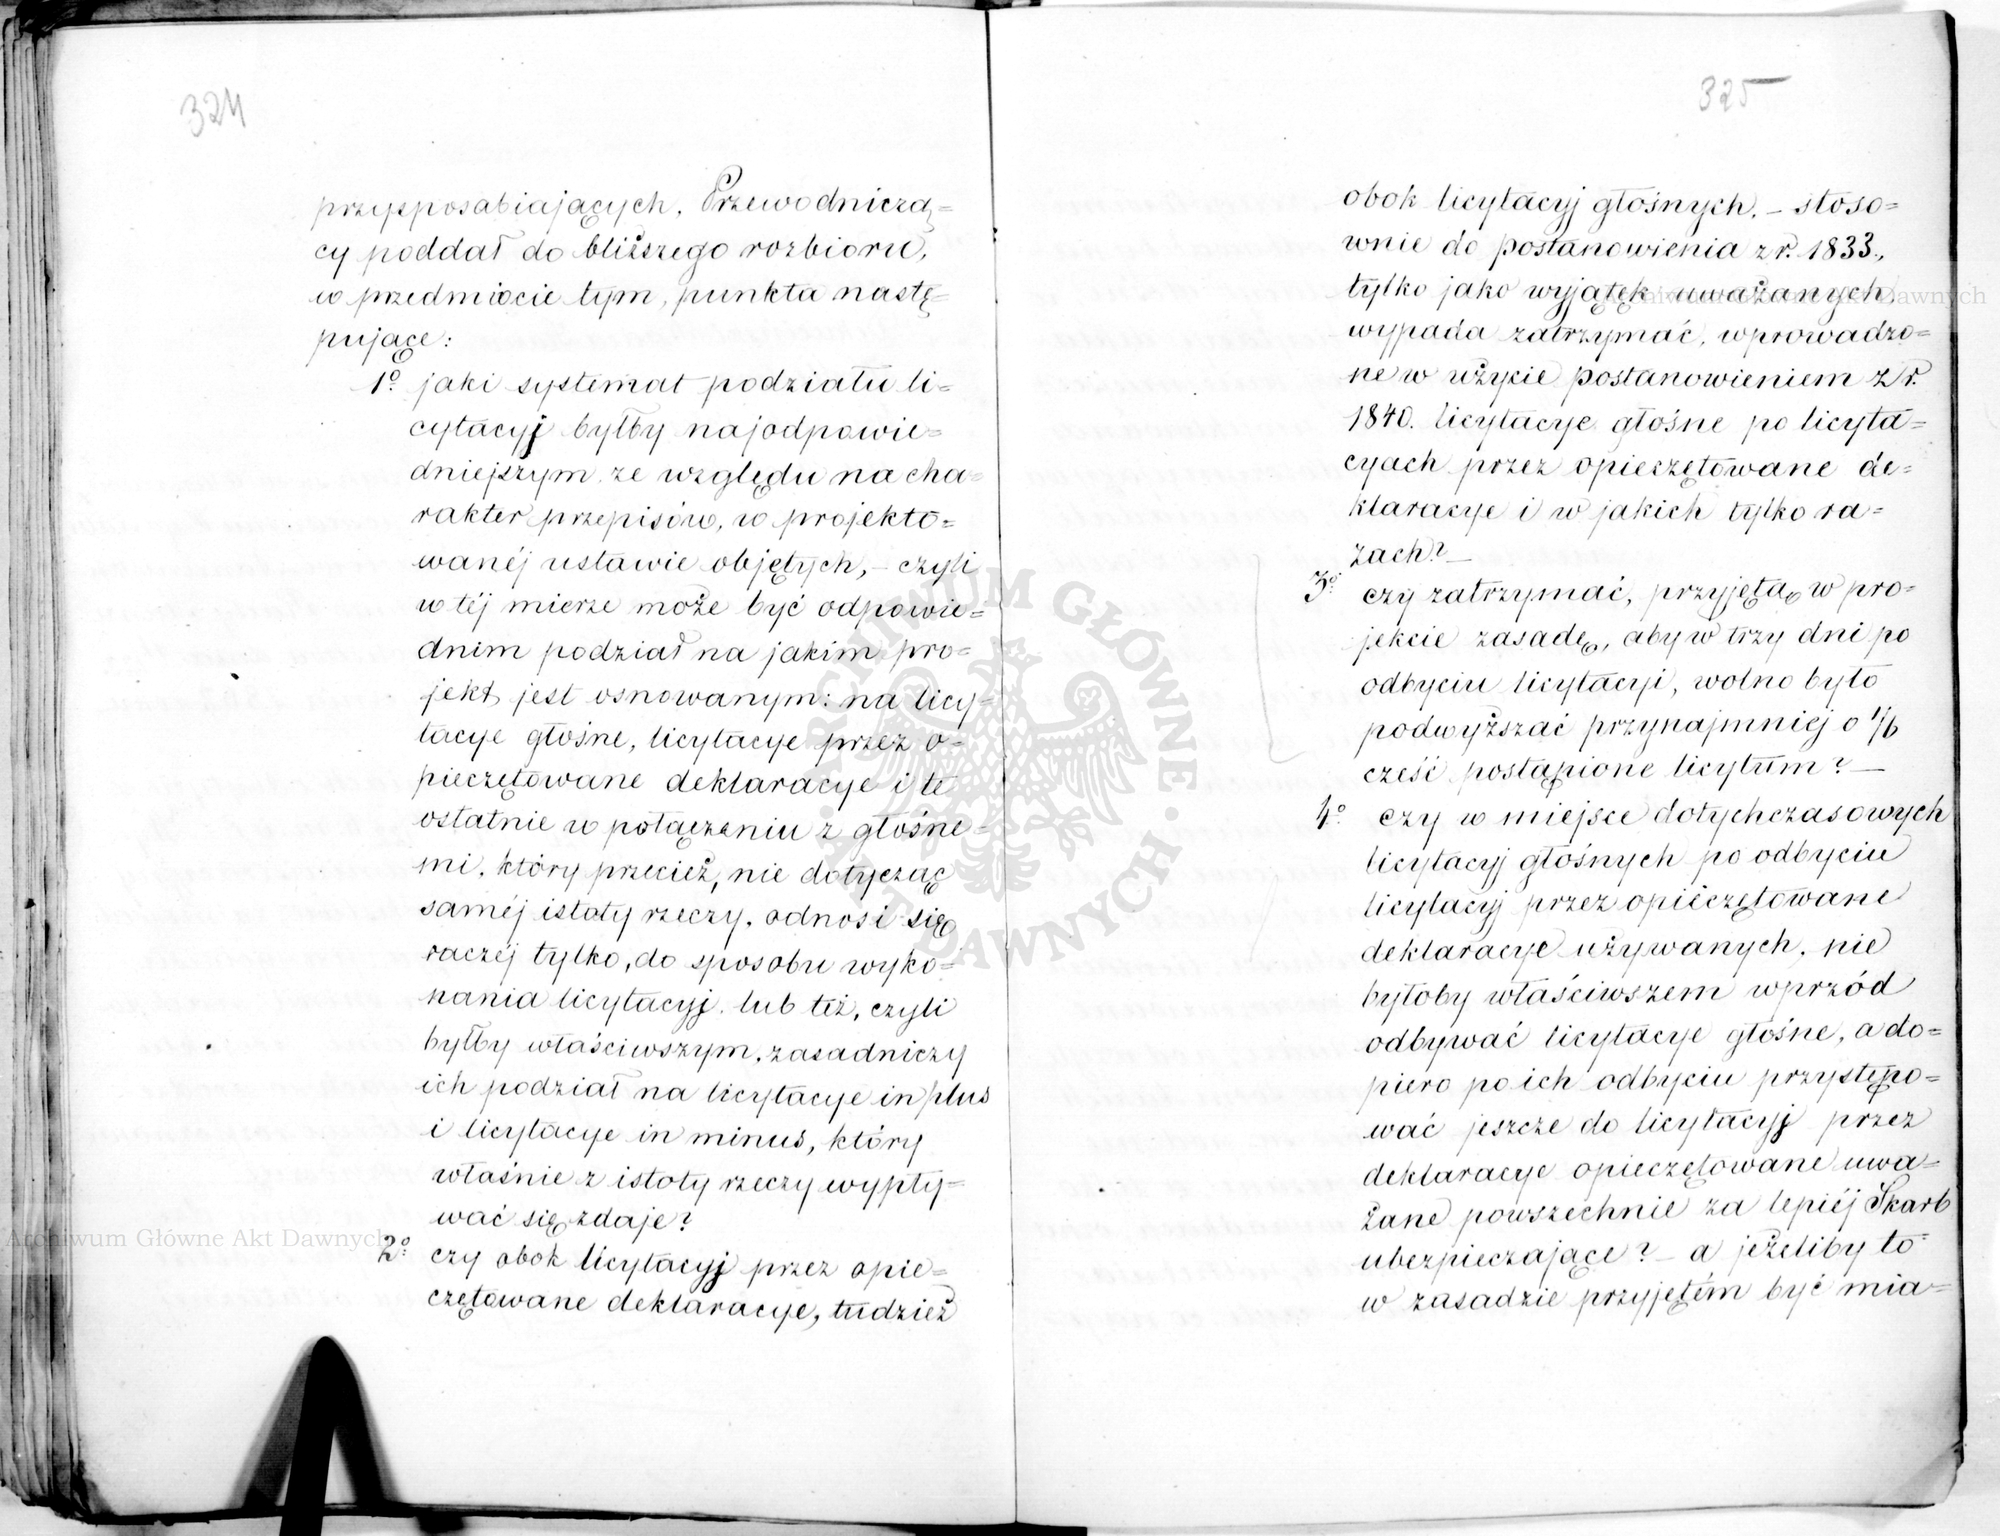 324
przysposabiających, Przewodniczą=
cy poddał do bliższego rozbioru,
w przedmiocie tym, punkta nastę=
pujące:
1º jaki systemat podziału li=
cytacyj byłby najodpowie=
dniejszym ze względu na cha=
rakter przepisów, w projekto=
wanéj ustawie objętych, – czyli
w téj mierze może być odpowie=
dnim podział na jakim pro=
jekt jest osnowanym: na licy=
tacye głośne, licytacye przez o=
pieczętowane deklaracye i te
ostatnie w połączeniu z głośne=
mi, który przecież, nie dotycząc
saméj istoty rzeczy, odnosi się
raczéj tylko, do sposobu wyko=
nania licytacyj, lub też, czyli
byłby właściwszym, zasadniczy
ich podział na licytacye in plus
i licytacye in minus, który
właśnie z istoty rzeczy wypły=
wać się zdaje?
2º czy obok licytacyj przez opie=
czętowane deklaracye, tudzież
325
obok licytacyj głośnych, – stoso=
wnie do postanowienia z r. 1833.,
tylko jako wyjątek uważanych,
wypada zatrzymać, wprowadzo=
ne w użycie postanowieniem z r.
1840. licytacye głośne po licyta=
cyach przez opieczętowane de=
klaracye i w jakich tylko ra=
zach? –
3º czy zatrzymać, przyjętą w pro=
jekcie zasadę, aby w trzy dni po
odbyciu licytacyi, wolno było
podwyższać przynajmniej o 1/6
cześć postąpione licytum? –
4º czy w miejsce dotychczasowych
licytacyj głośnych po odbyciu
licytacyj przez opieczętowane
deklaracye używanych, nie
byłoby właściwszem wprzód
odbywać licytacye głośne, a do=
piero po ich odbyciu przystępo=
wać jeszcze do licytacyj przez
deklaracye opieczętowane uwa=
żane powszechnie za lepiéj Skarb
ubezpieczające? – a jeżeliby to
w zasadzie przyjętém być mia=
Archiwum Główne Akt Dawnych
Archiwum Główne Akt Dawnych
ARCHIWUM GŁÓWNE AKT DAWNYCH